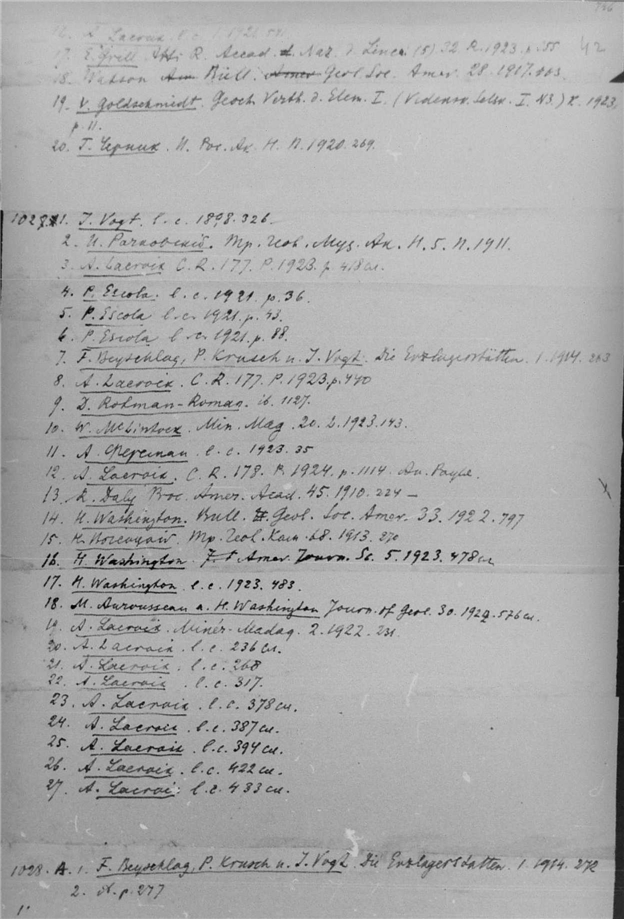 A. Lacroix. l. c. 1. 1922.
17. E. Grill. Atti R. Accad. d. Naz. d. Lincei (5) 32. R. 1923. p.
18. Watson Bull. Geol. Soc. Amer. 28. 1917.
19. V. Goldschmidt. Geoch. Verth. d. Elem. I. (Vedensk. Selsk. I. N3.) K. 1923.
p. 11.
20. Г. Черник. И. Рос. Ак. Н. П. 1920. 269.
1027. 1. J. Vogt. l. c. 1898. 326.
2. И. Рачковский. Тр. Геол. Муз. Ак. Н. 5. П. 1911.
3. A. Lacroix C. R. 177. P. 1923. p. 418 сл.
4. P. Escola. l. c. 1921. p. 36.
5. P. Escola l. c. 1921. p. 43.
6. P. Escola l. c. 1921. p. 88.
7. F. Beyschlag, P. Krusch u. J. Vogt. Die Erzlagerstätten. 1. 1914. 263
8. A. Lacroix. C. R. 177. P. 1923. p. 440
9. D. Rotman-Romag. ib. 1127.
10. W. McLintock. Min. Mag. 20. L. 1923. 143.
11. А. Ферсман. l. c. 1923. 35
12. A. Lacroix. C. R. 178. P. 1924. p. 1114.
13. R. Daly Proc. Amer. Acad. 45. 1910. 224 –
14. H. Washington. Bull. Geol. Soc. Amer. 33. 1922. 797
15. Тр. Геол. Ком. 68. 1913. 270
16. H. Washington. Amer. Journ. Sc. 5. 1923. 478 сл
17. H. Washington l. c. 1923. 483.
18. M. Aurousseau a. H. Washington Journ. of Geol. 30. 1922. 576 сл.
19. A. Lacroix. Minér. Madag. 2. 1922. 231.
20. A. Lacroix. l. c. 236 сл.
21. A. Lacroix. l. c. 268
22. A. Lacroix. l. c. 317.
23. A. Lacroix l. c. 378 сл.
24. A. Lacroix l. c. 387 сл.
25. A. Lacroix. l. c. 394 сл.
26. A. Lacroix. l. c. 422 сл.
27. A. Lacroix. l. c. 433 сл.
1028. A. 1. F. Beyschlag, P. Krusch u. J. Vogt. Die Erzlagerstätten. 1. 1914. 272
2. p. 277